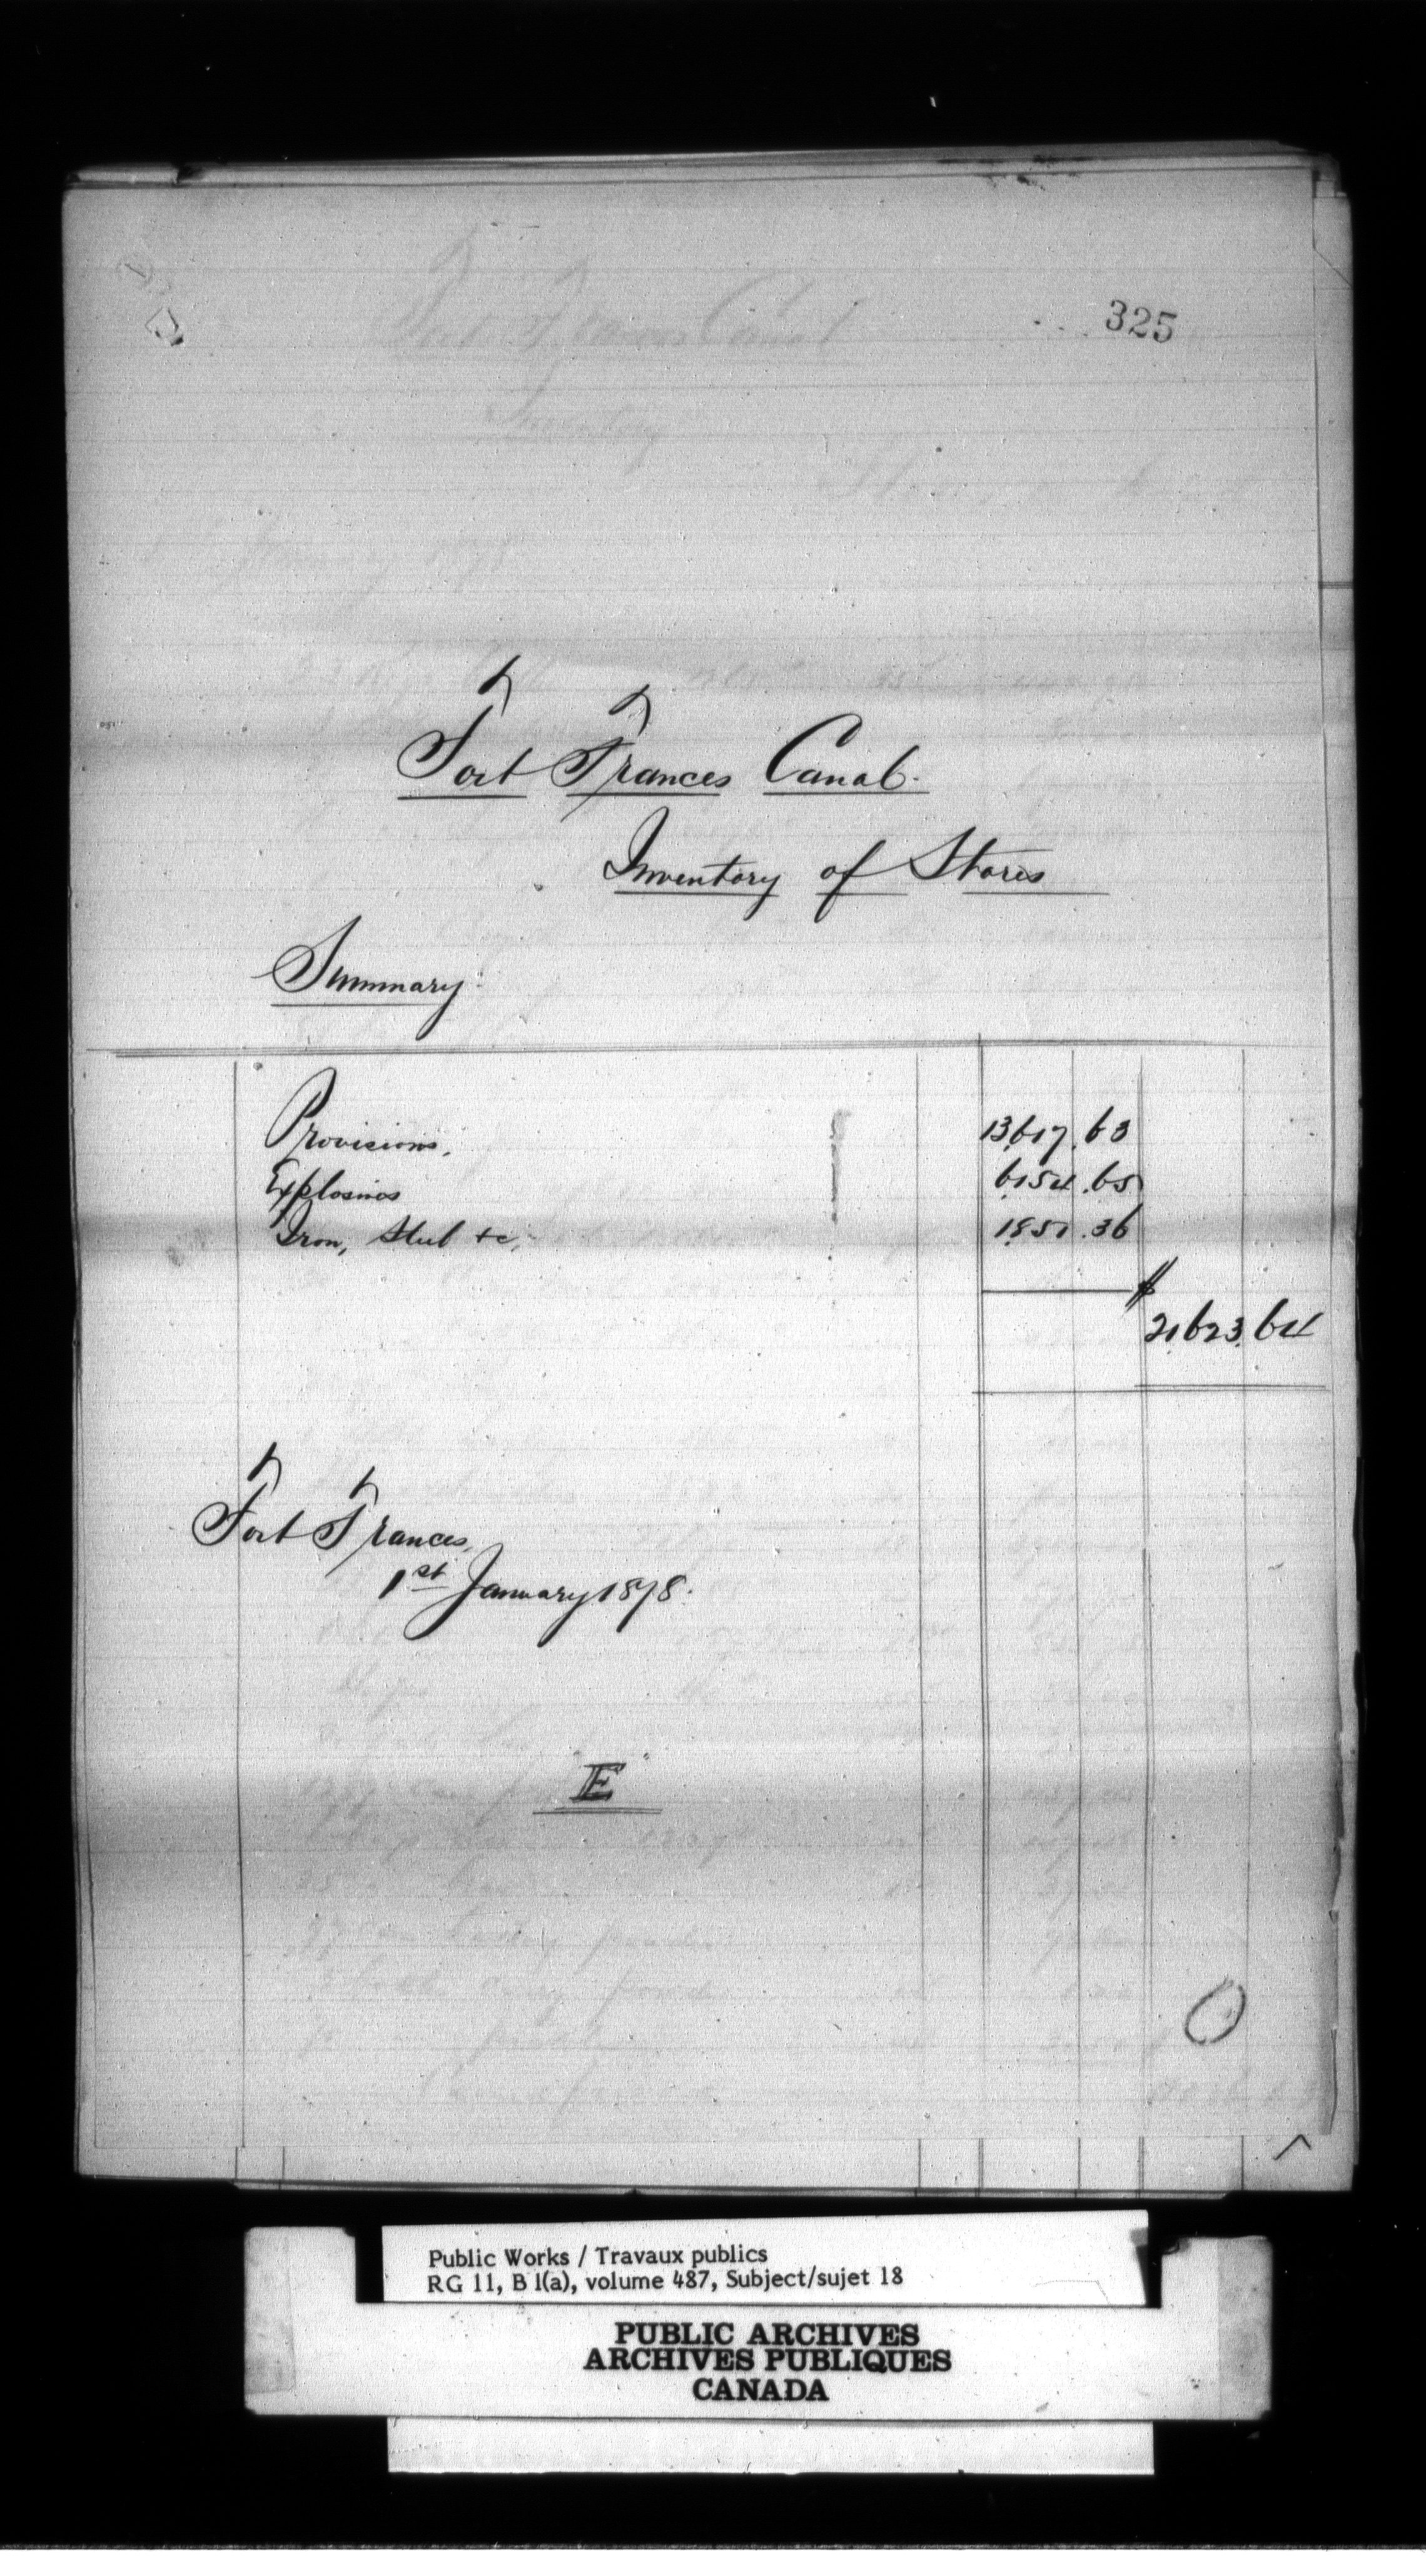 325
Fort Frances Canal.
Inventory of Stores
Summary.
Provisions, 13,617.63
Explosives 6,154.65
Iron, Steel &c, 1,851.36
$
21,623.64
Fort Frances,
1st January 1878.
"E"
Public Works / Travaux publics
RG 11, B 1(a), volume 487, Subject/sujet 18
PUBLIC ARCHIVES
ARCHIVES PUBLIQUES
CANADA